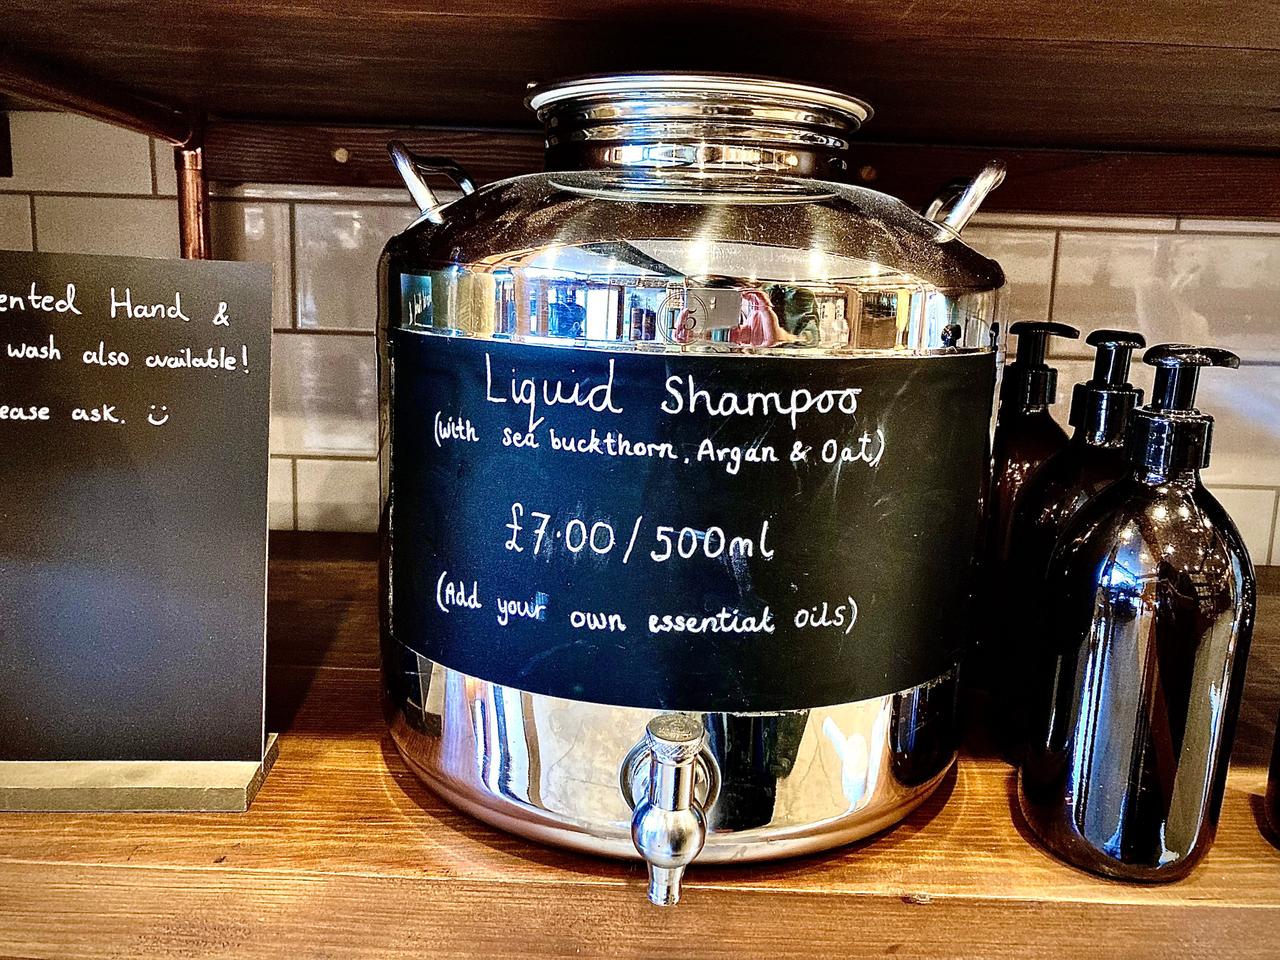 ented Hand &
wash also available!
ease ask.
15
Liquid Shampoo
(with sea buckthorn, Argan & Oat)
£7.00/500ml
(Add your own essential oils)